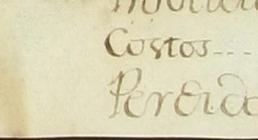 Costos...
Perdido